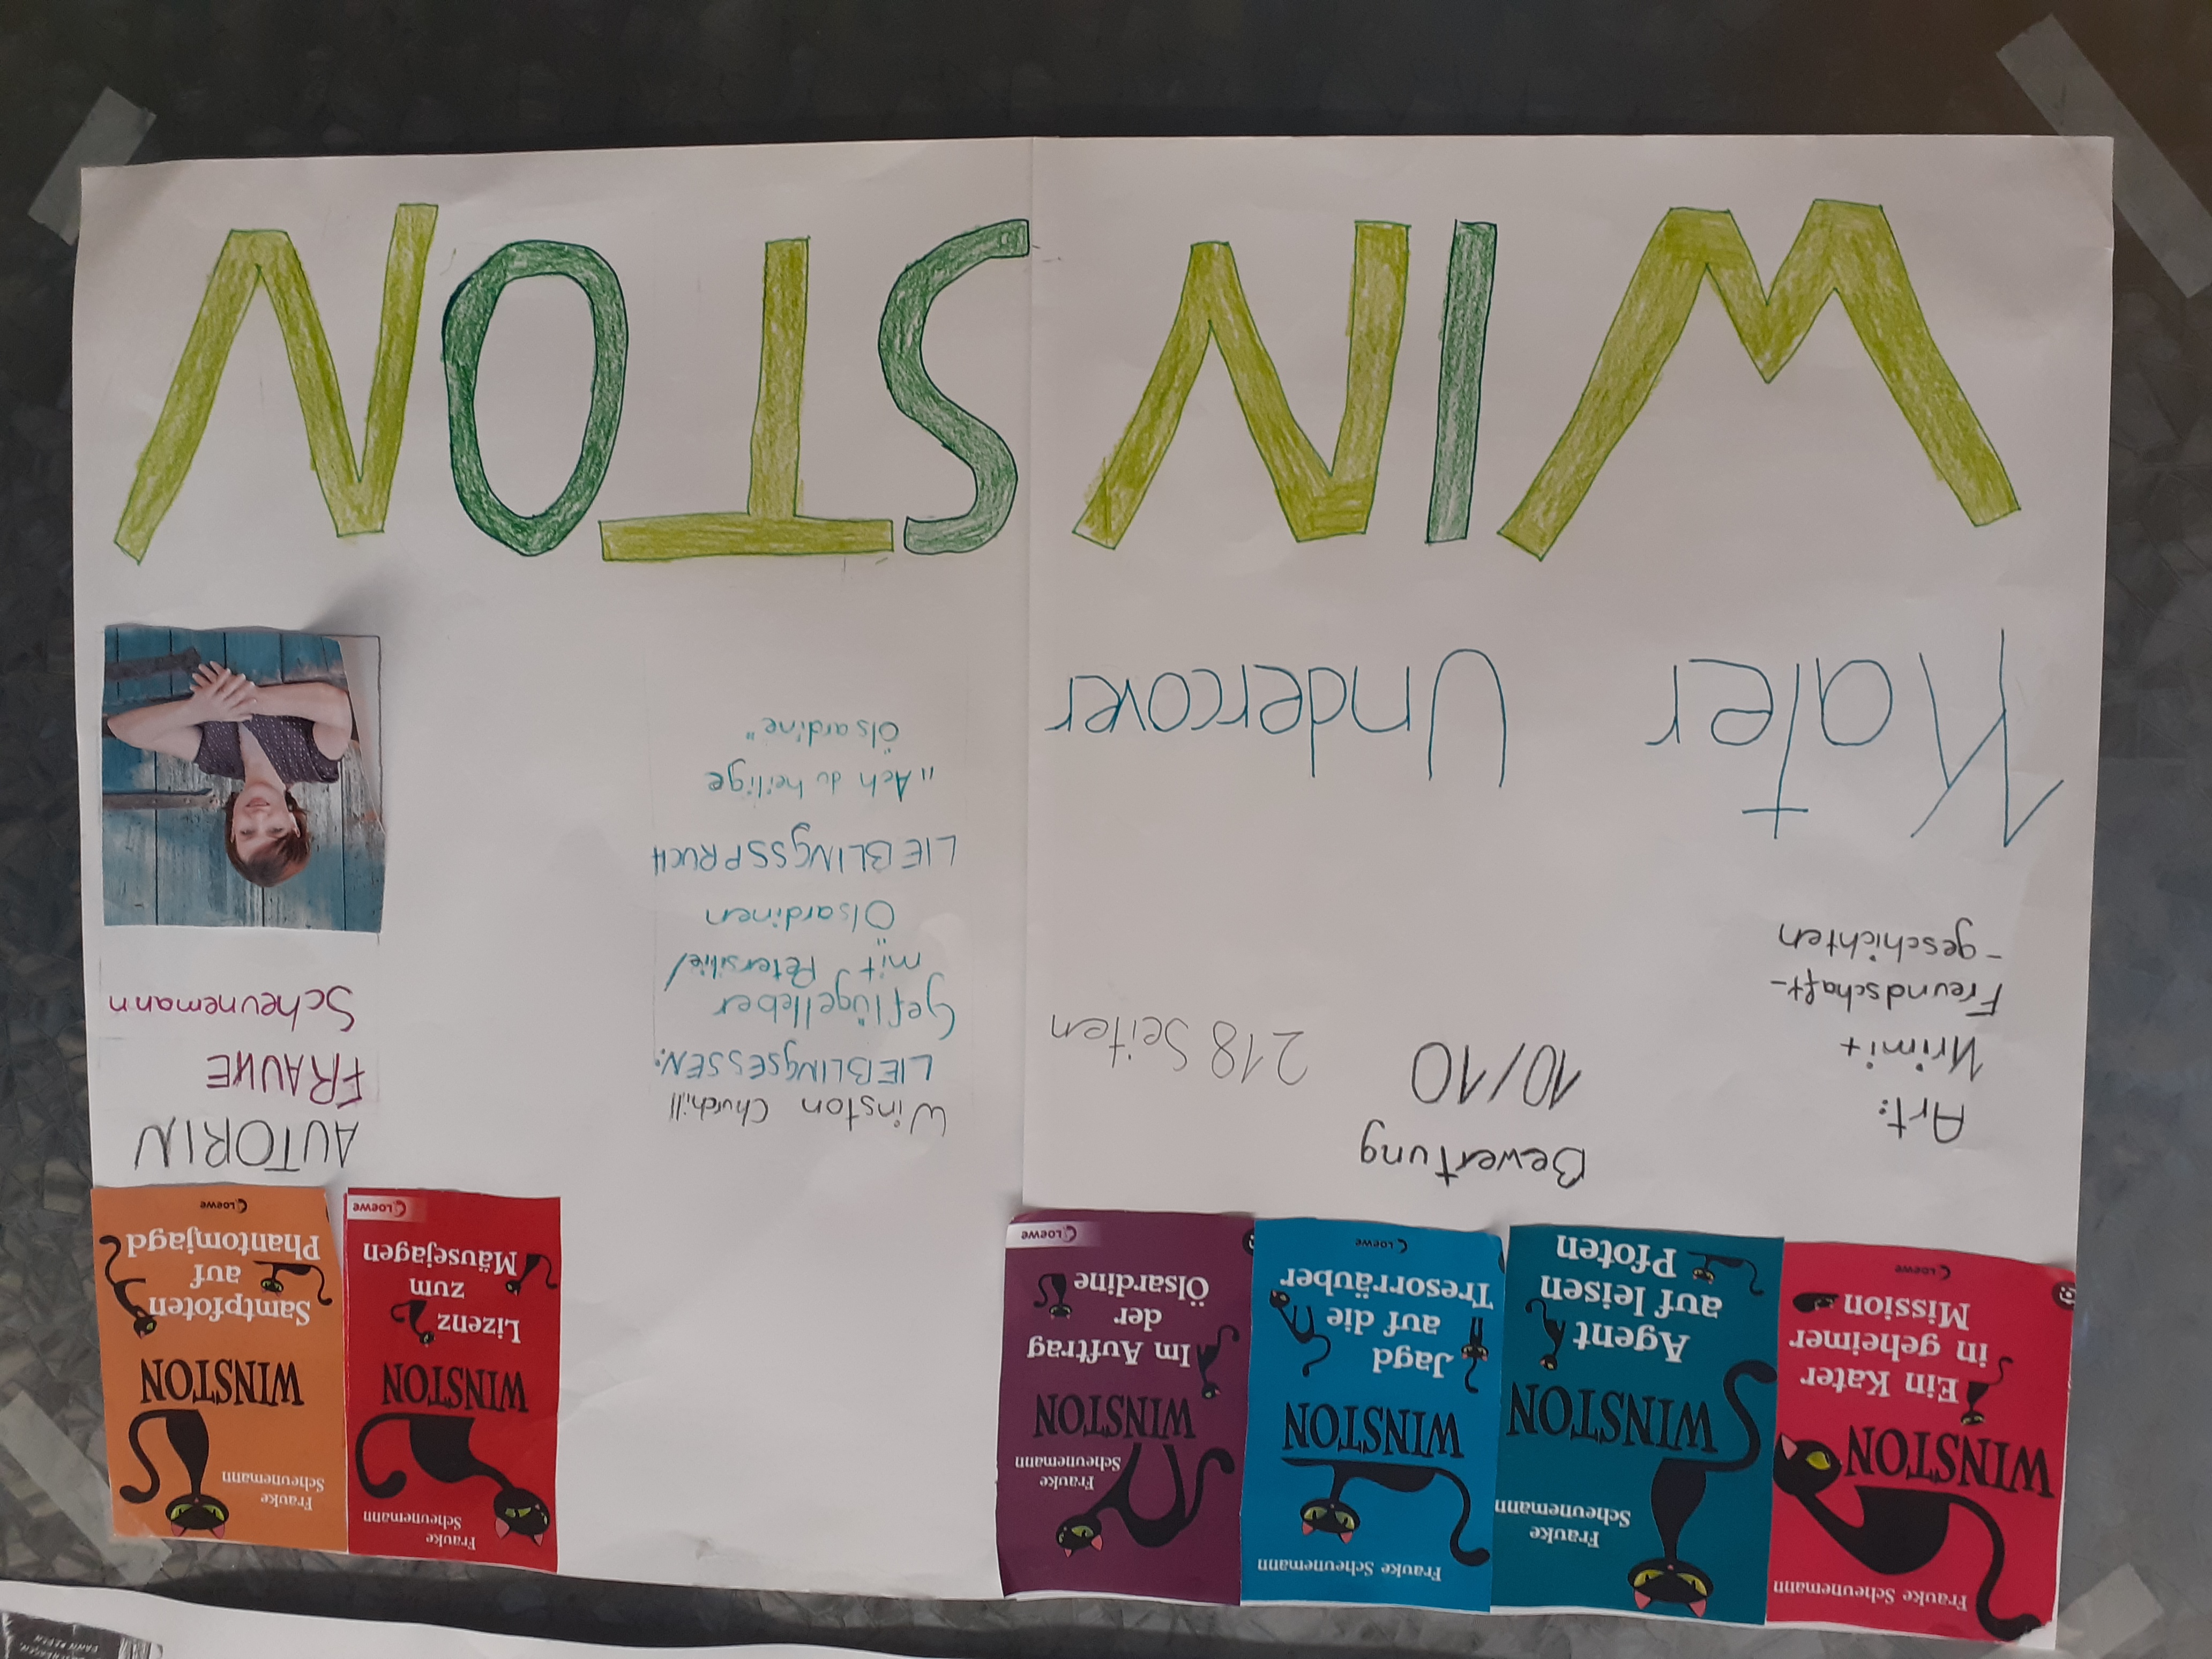 Frauke Scheunemann
WINSTON
Ein Kater
in geheimer
Mission
Loewe
Frauke
Scheunemann
WINSTON
Agent
auf leisen
Pfoten
Frauke Scheunemann
WINSTON
Jagd
auf die
Tresorräuber
Loewe
Frauke
Scheunemann
WINSTON
Im Auftrag
der
Ölsardine
Loewe
Frauke
Scheunemann
WINSTON
Lizenz
zum
Mäusejagen
Loewe
Frauke
Scheunemann
WINSTON
Samtpfoten
auf
Phantomjagd
Loewe
Art:
Krimi +
Freundschaft-
-geschichten
Bewertung
10/10
218 Seiten
Winston Churchill
LIEBLINGSESSEN:
Geflügelleber
mit Petersilie/
Ölsardinen
LIEBLINGSSPRUCH
„Ach du heilige
Ölsardine"
AUTORIN
FRAUKE
Scheunemann
Kater Undercover
WINSTON